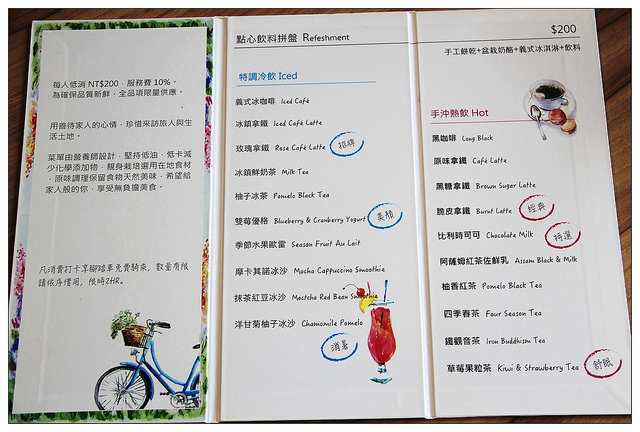 每人低消 NT$200，服務費 10%。
為確保品質新鮮，全品項限量供應。
用善待家人的心情，珍惜來訪旅人與生
活土地。
菜單由營養師設計，堅持低油、低卡減
少化學添加物，親身栽培選用在地食材
，原味調理保留食物天然美味，希望給
家人般的你，享受無負擔美食。
凡消費打卡享腳踏車免費騎乘，數量有限
請依序借用，限時2HR。
點心飲料拼盤 Refeshment
特調冷飲 Iced
義式冰咖啡 Iced Café
冰鎮拿鐵 Iced Café Latte
玫瑰拿鐵 Rose Café Latte 招牌
冰鎮鮮奶茶 Milk Tea
柚子冰茶 Pomelo Black Tea
雙莓優格 Blueberry & Cranberry Yogurt 美顏
季節水果歐蕾 Season Fruit Au Lait
摩卡其諾冰沙 Mocha Cappuccino Smoothie
抹茶紅豆冰沙 Moctcha Red Bean Smothie
洋甘菊柚子冰沙 Chamomile Pomelo
消暑
$200
手工餅乾+盆栽奶酪+義式冰淇淋+飲料
手沖熱飲 Hot
黑咖啡 Long Black
原味拿鐵 Café Latte
黑糖拿鐵 Brown Sugar Latte
脆皮拿鐵 Burnt Latte 經典
比利時可可 Chocolate Milk 特選
阿薩姆紅茶佐鮮乳 Assam Black & Milk
柚香紅茶 Pomelo Black Tea
四季春茶 Four Season Tea
鐵觀音茶 Iron Buddhism Tea
草莓果粒茶 Kiwi & Strawberry Tea 舒眠